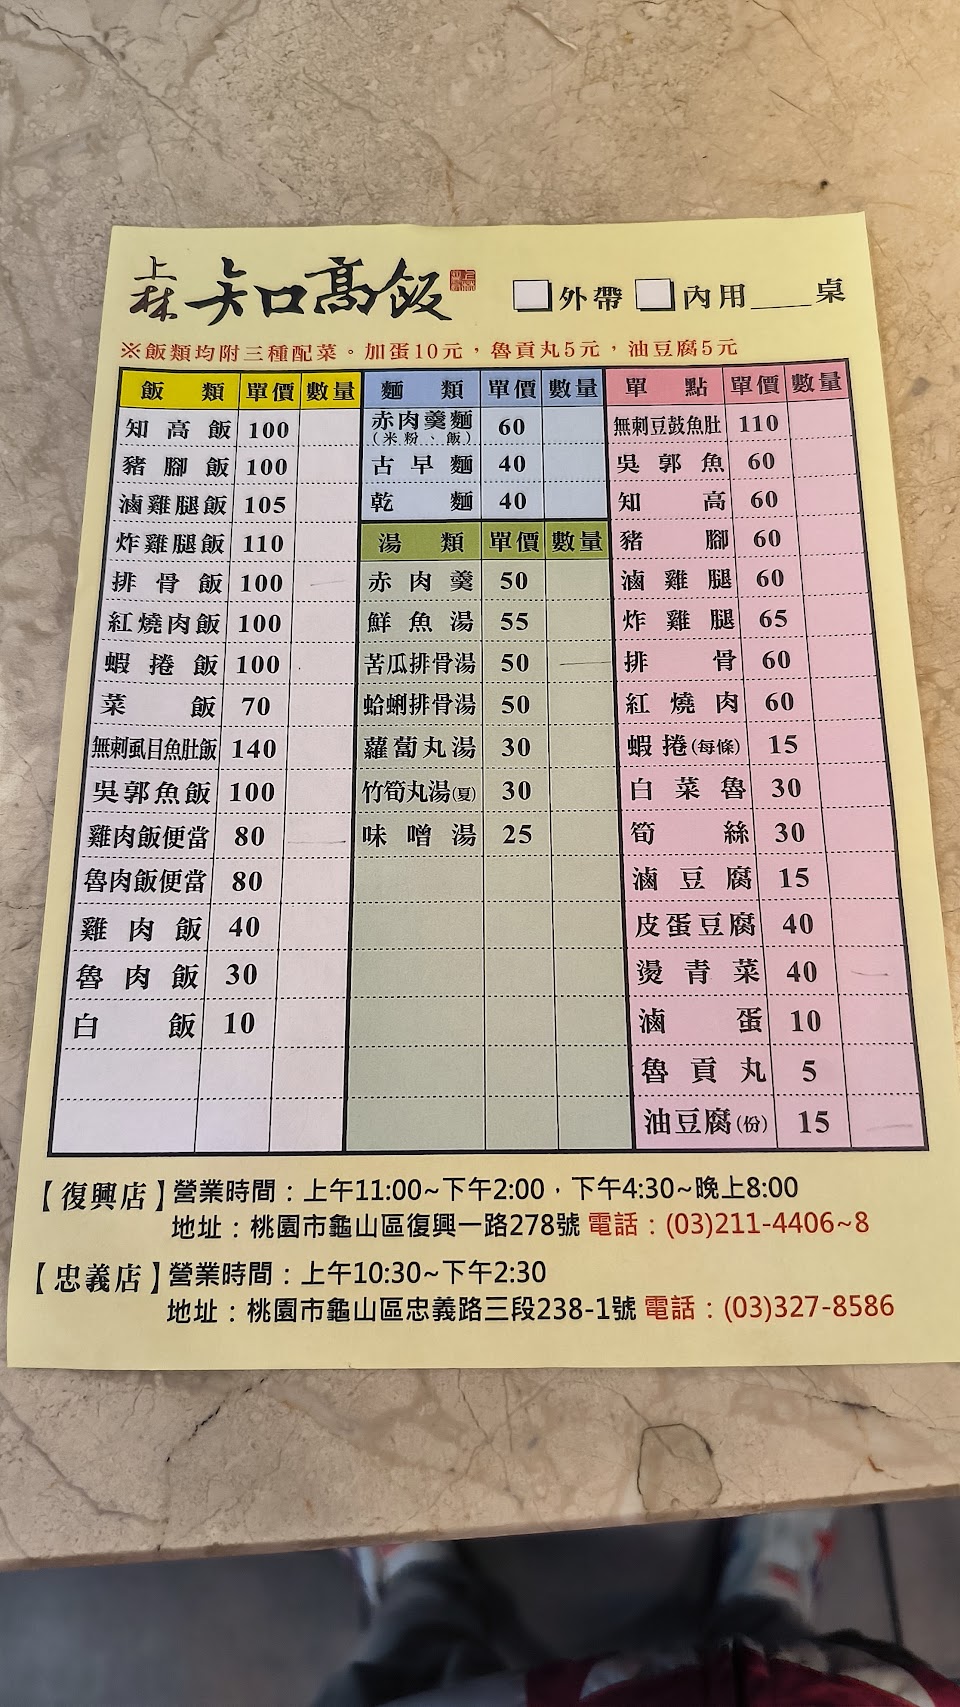 上林 知高飯
外帶 內用____桌
※飯類均附三種配菜。加蛋10元，魯貢丸5元，油豆腐5元
飯類 單價 數量
知高飯 100
豬腳飯 100
滷雞腿飯 105
炸雞腿飯 110
排骨飯 100
紅燒肉飯 100
蝦捲飯 100
菜飯 70
無刺虱目魚肚飯 140
吳郭魚飯 100
雞肉飯便當 80
魯肉飯便當 80
雞肉飯 40
魯肉飯 30
白飯 10
麵類 單價 數量
赤肉羹麵 60
（米粉、飯）
古早麵 40
乾麵 40
湯類 單價 數量
赤肉羹 50
鮮魚湯 55
苦瓜排骨湯 50
蛤蜊排骨湯 50
蘿蔔丸湯 30
竹筍丸湯(夏) 30
味噌湯 25
單點 單價 數量
無刺豆鼓魚肚 110
吳郭魚 60
知高 60
豬腳 60
滷雞腿 60
炸雞腿 65
排骨 60
紅燒肉 60
蝦捲(每條) 15
白菜魯 30
筍絲 30
滷豆腐 15
皮蛋豆腐 40
燙青菜 40
滷蛋 10
魯貢丸 5
油豆腐(份) 15
【復興店】營業時間：上午11:00~下午2:00，下午4:30~晚上8:00
地址：桃園市龜山區復興一路278號 電話：(03)211-4406~8
【忠義店】營業時間：上午10:30~下午2:30
地址：桃園市龜山區忠義路三段238-1號 電話：(03)327-8586